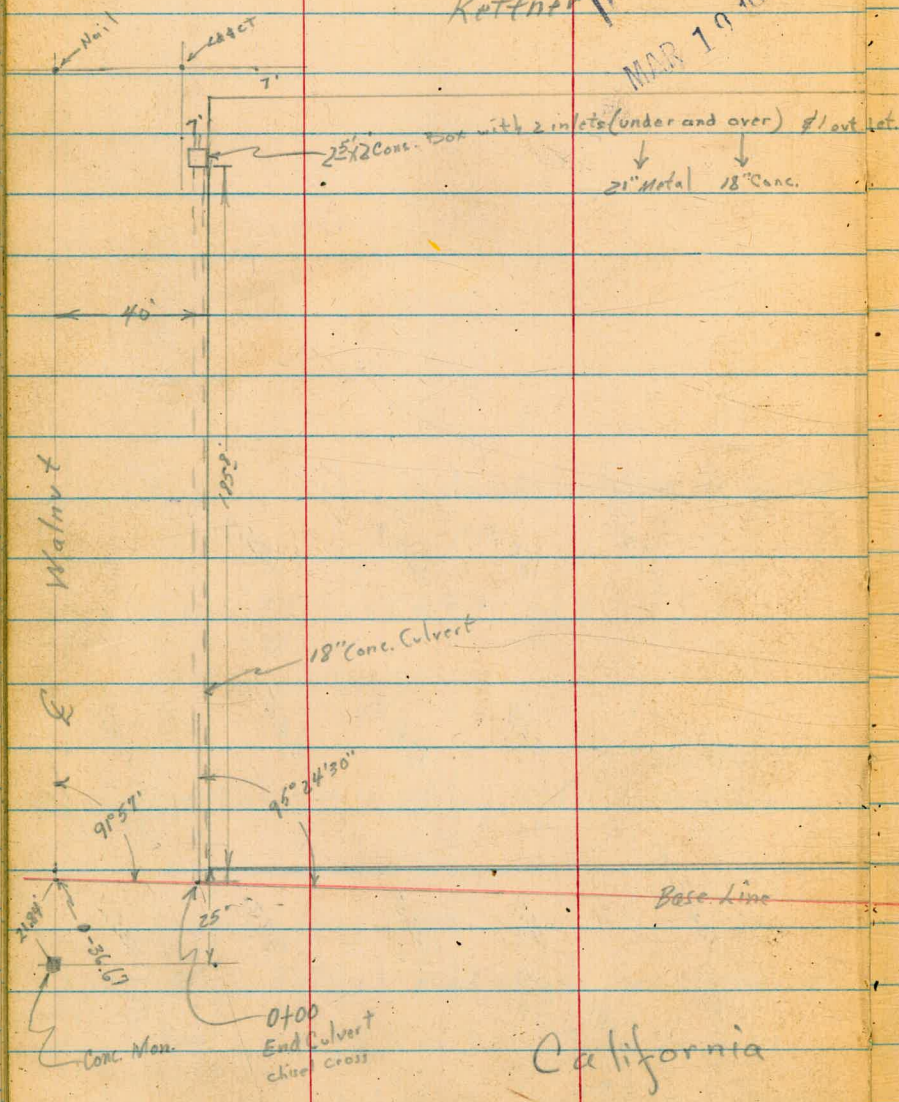 Kettner
MAR 19
Nail
7'
7'
Conc. Box with 2 inlets (under and over) & 1 outlet.
21" Metal 18" Conc.
40'
185.8'
Walnut
℄
18" Conc. Culvert
91° 57'
95° 24' 30"
Base Line
21.84'
0-36.67
25'
0+00
End Culvert
chisel cross
Conc. Mon.
California